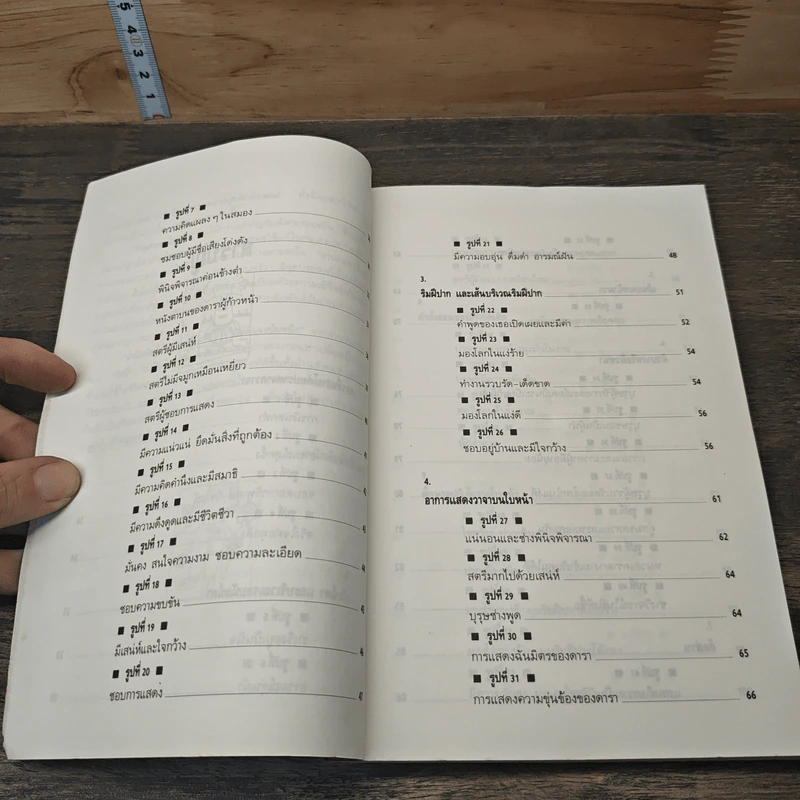 5
4
3
2
1
■ รูปที่ 7 ■
ความคิดแผลง ๆ ในสมอง
■ รูปที่ 8 ■
ชมชอบผู้มีชื่อเสียงโด่งดัง
■ รูปที่ 9 ■
พินิจพิจารณาค่อนข้างต่ำ
■ รูปที่ 10 ■
หนังตาบนของดาราผู้ก้าวหน้า
■ รูปที่ 11 ■
สตรีผู้มีเสน่ห์
■ รูปที่ 12 ■
สตรีไม่มีจมูกเหมือนเหยี่ยว
■ รูปที่ 13 ■
สตรีผู้ชอบการแสดง
■ รูปที่ 14 ■
มีความแน่วแน่ ยึดมั่นสิ่งที่ถูกต้อง
■ รูปที่ 15 ■
มีความคิดคำนึงและมีสมาธิ
■ รูปที่ 16 ■
มีความดึงดูดและมีชีวิตชีวา
■ รูปที่ 17 ■
มั่นคง สนใจความงาม ชอบความละเอียด
■ รูปที่ 18 ■
ชอบความขบขัน
■ รูปที่ 19 ■
มีเสน่ห์และใจกว้าง
■ รูปที่ 20 ■
ชอบการแสดง 47
■ รูปที่ 21 ■
มีความอบอุ่น ดื่มด่ำ อารมณ์ฝัน 48
3.
ริมฝีปาก และเส้นบริเวณริมฝีปาก 51
■ รูปที่ 22 ■
คำพูดของเธอเปิดเผยและมีค่า 52
■ รูปที่ 23 ■
มองโลกในแง่ร้าย 54
■ รูปที่ 24 ■
ทำงานรวบรัด-เด็ดขาด 54
■ รูปที่ 25 ■
มองโลกในแง่ดี 56
■ รูปที่ 26 ■
ชอบอยู่บ้านและมีใจกว้าง 56
4.
อาการแสดงวาจาบนใบหน้า 61
■ รูปที่ 27 ■
แน่นอนและช่างพินิจพิจารณา 62
■ รูปที่ 28 ■
สตรีมากไปด้วยเสน่ห์ 64
■ รูปที่ 29 ■
บุรุษช่างพูด 64
■ รูปที่ 30 ■
การแสดงฉันมิตรของดารา 65
■ รูปที่ 31 ■
การแสดงความขุ่นข้องของดารา 66